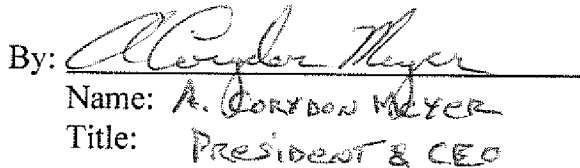 By: A Corydon Meyer
Name: A. CORYDON MEYER
Title: PRESIDENT & CEO